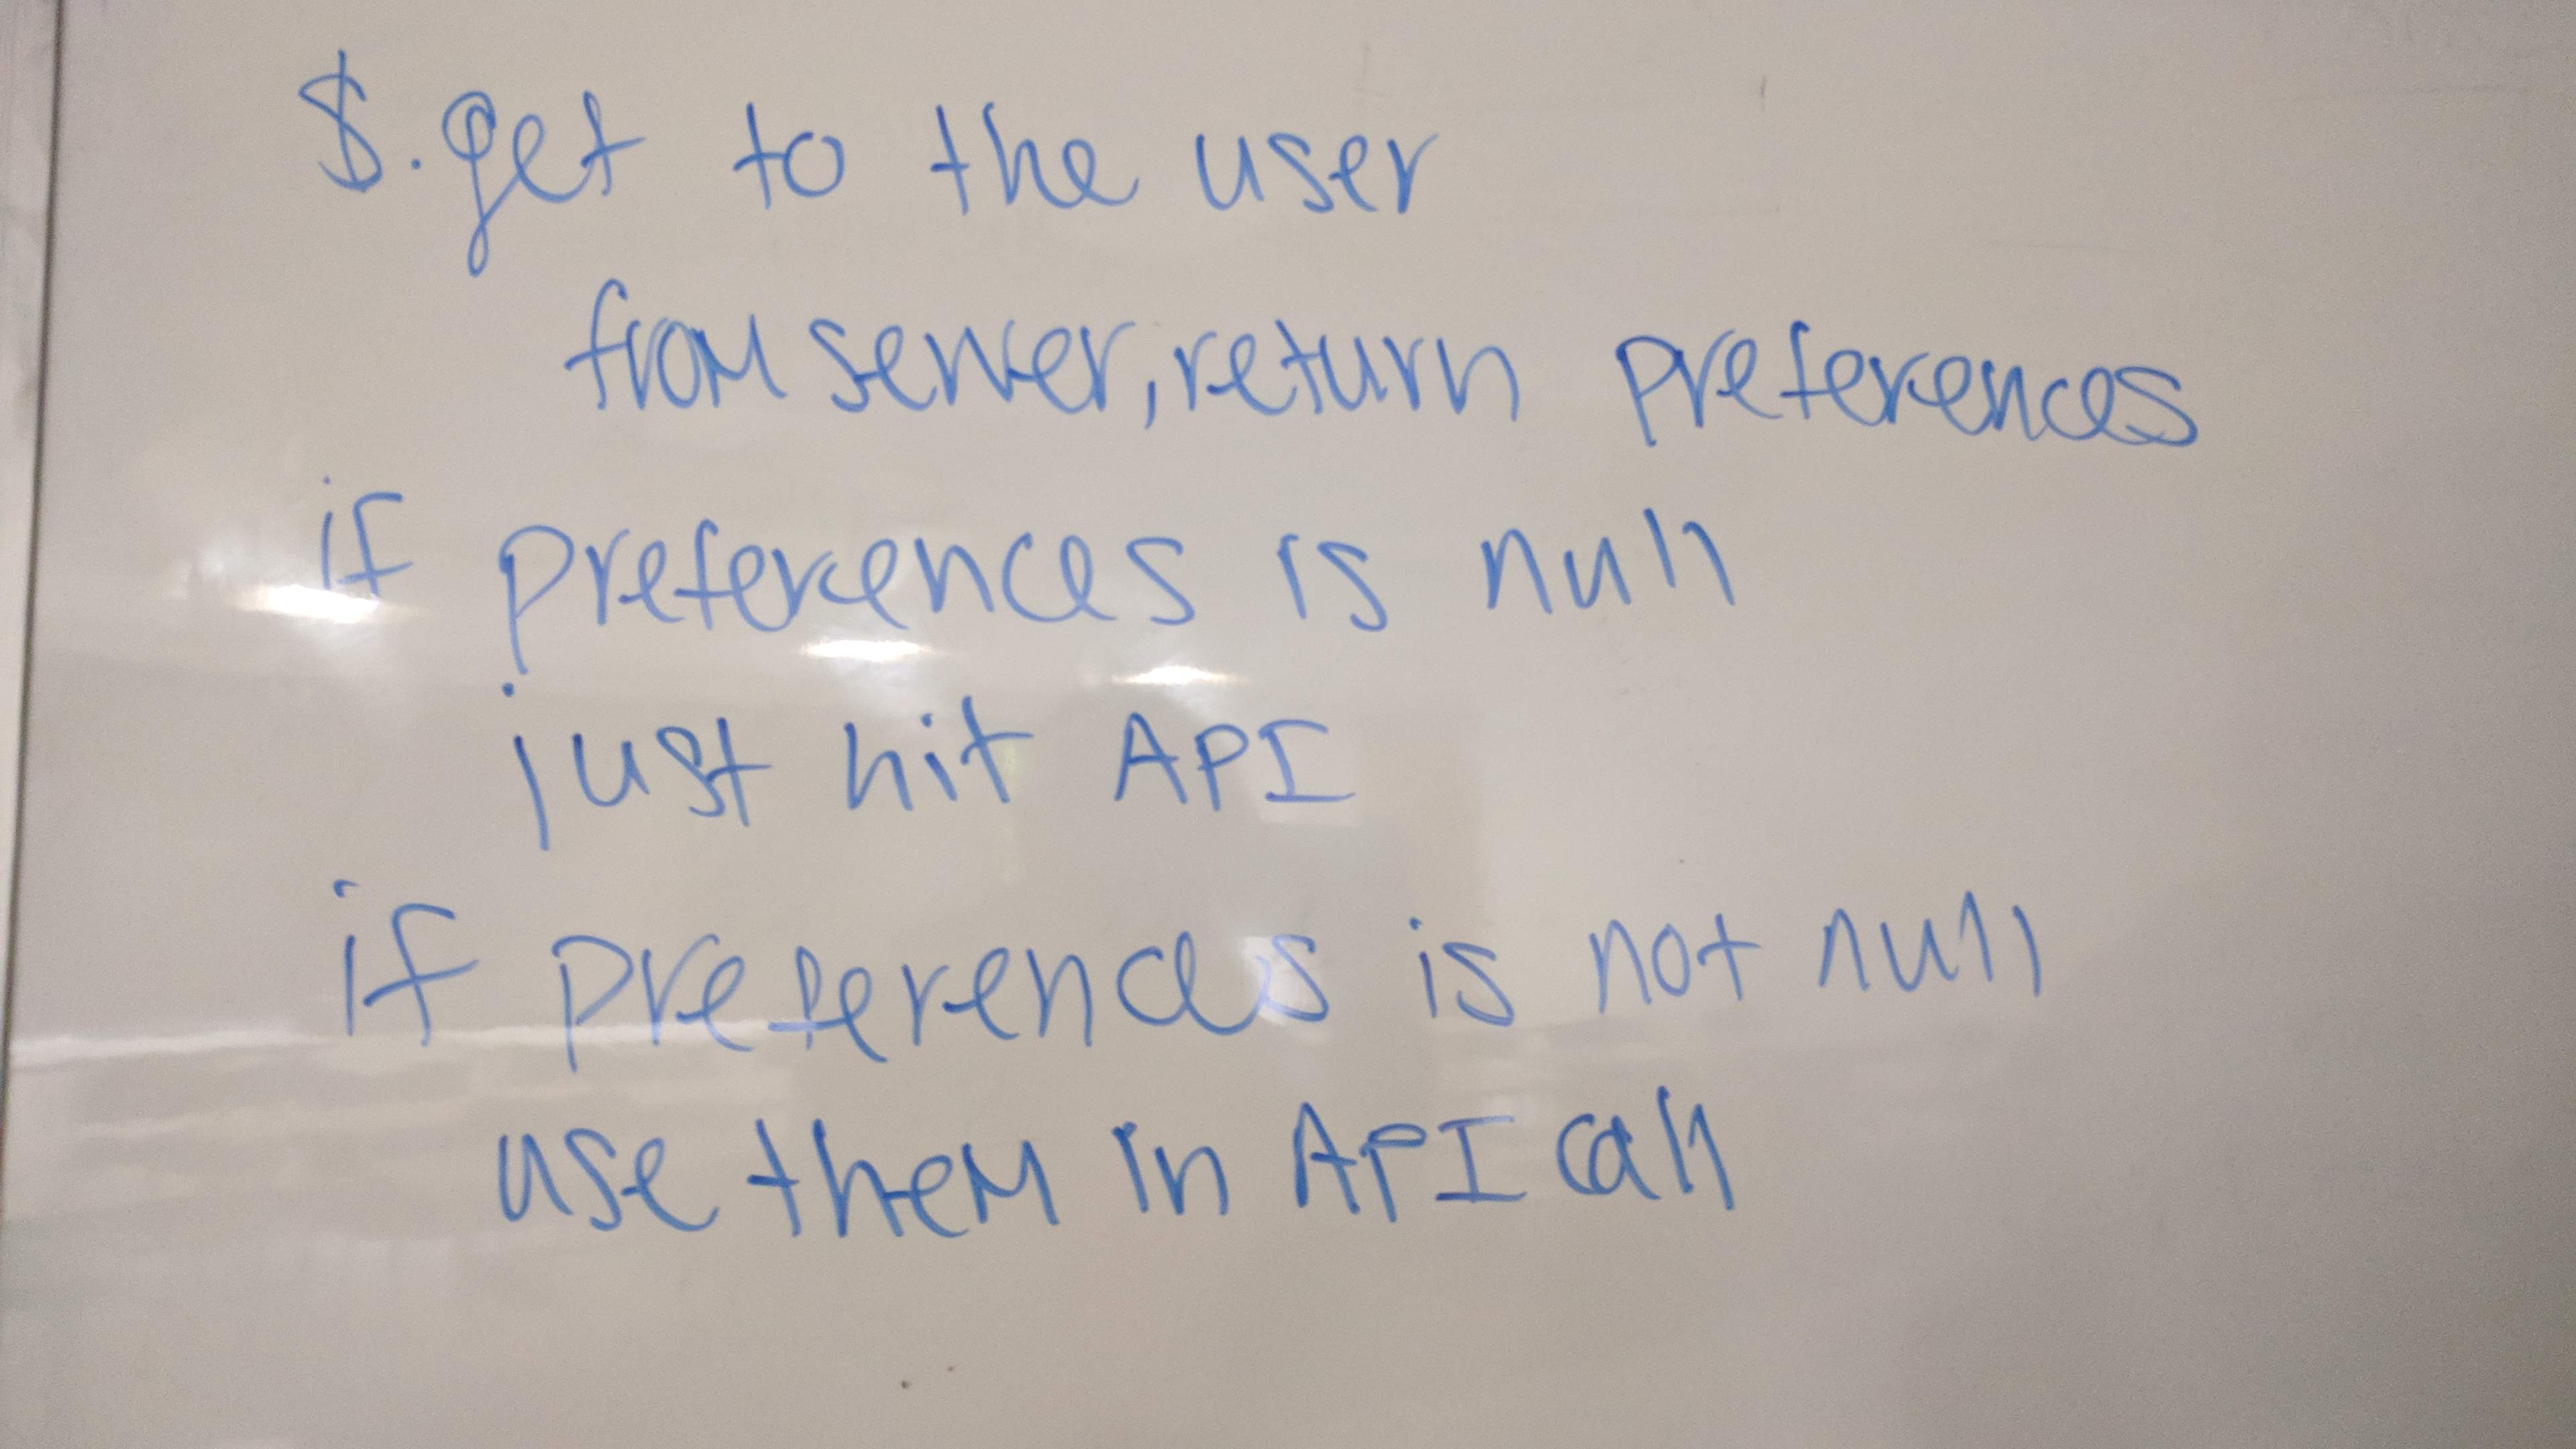 $.get to the user
from server, return preferences
if preferences is null
just hit API
if preferences is not null
use them in API call